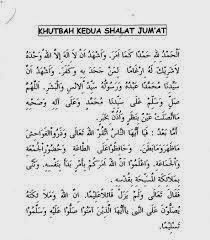 KHUTBAH KEDUA SHALAT JUM'AT
اَلْحَمْدُ لِلّٰهِ حَمْدًا كَمَا اَمَرَ. وَاَشْهَدُ اَنْ لَا اِلٰهَ اِلَّا اللهُ وَحْدَهُ
لَاشَرِيْكَ لَهُ اِرْغَامًا لِمَنْ جَحَدَ بِهِ وَكَفَرَ. وَاَشْهَدُ اَنَّ
سَيِّدَنَا مُحَمَّدًا عَبْدُهُ وَرَسُوْلُهُ سَيِّدُ الْاِنْسِ وَالْبَشَرِ. اَللّٰهُمَّ
صَلِّ وَسَلِّمْ عَلَى سَيِّدِنَا مُحَمَّدٍ وَعَلَى اٰلِهِ وَصَحْبِهِ
مَااتَّصَلَتْ عَيْنٌ بِنَظَرٍ
اَمَّا بَعْدُ : فَيَا اَيُّهَا النَّاسُ اتَّقُوا اللهَ وَذَرُوا الْفَوَاحِشَ
مَاظَهَرَ وَمَابَطَنَ. وَحَافِظُوْا عَلَى الطَّاعَةِ وَحُضُوْرِ الْجُمْعَةِ
وَالْجَمَاعَةِ. وَاعْلَمُوْا اَنَّ اللهَ اَمَرَكُمْ بِاَمْرٍ بَدَأَ فِيْهِ بِنَفْسِهِ. وَثَنَّى
بِمَلَائِكَتِهِ الْمُسَبِّحَةِ بِقُدْسِهِ.
فَقَالَ تَعَالَى وَلَمْ يَزَلْ قَائِلًا عَلِيْمًا. اِنَّ اللهَ وَمَلَائِكَتَهُ
يُصَلُّوْنَ عَلَى النَّبِيِّ يَااَيُّهَا الَّذِيْنَ اٰمَنُوْا صَلُّوْا عَلَيْهِ وَسَلِّمُوْا
تَسْلِيْمًا.